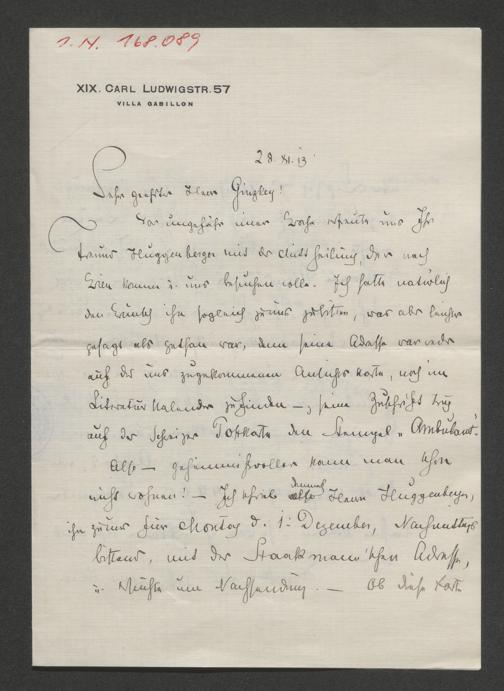 I. N. 168.089
XIX. CARL LUDWIGSTR. 57
VILLA GABILLON
28. XI. 13
Sehr geehrter Herr Ginzkey!
Vor ungefähr einer Woche erfreute uns Ihr
Freund Huggenberger mit der Mittheilung, der nach
Wien komme u. uns besuchen wolle. Ich hatte natürlich
den Wunsch ihn sogleich zu uns zu bitten, was aber leichter
gesagt als gethan war, denn seine Adresse war weder
auf der uns zugekommenen Ansichtskarte, noch im
Literatur Kalender zu finden —, seine Zuschrift trug
auf der Schweizer Postkarte den Stempel „Ambulant".
Also — geheimnißvoller kann man schon
nicht wohnen! — Ich schrieb demnach Herrn Huggenberger,
ihn zu uns für Montag d. 1. Dezember, Nachmittags
bittend, mit der Staakmann'schen Adresse,
u. ersuchte um Nachsendung. — Ob diese Karte